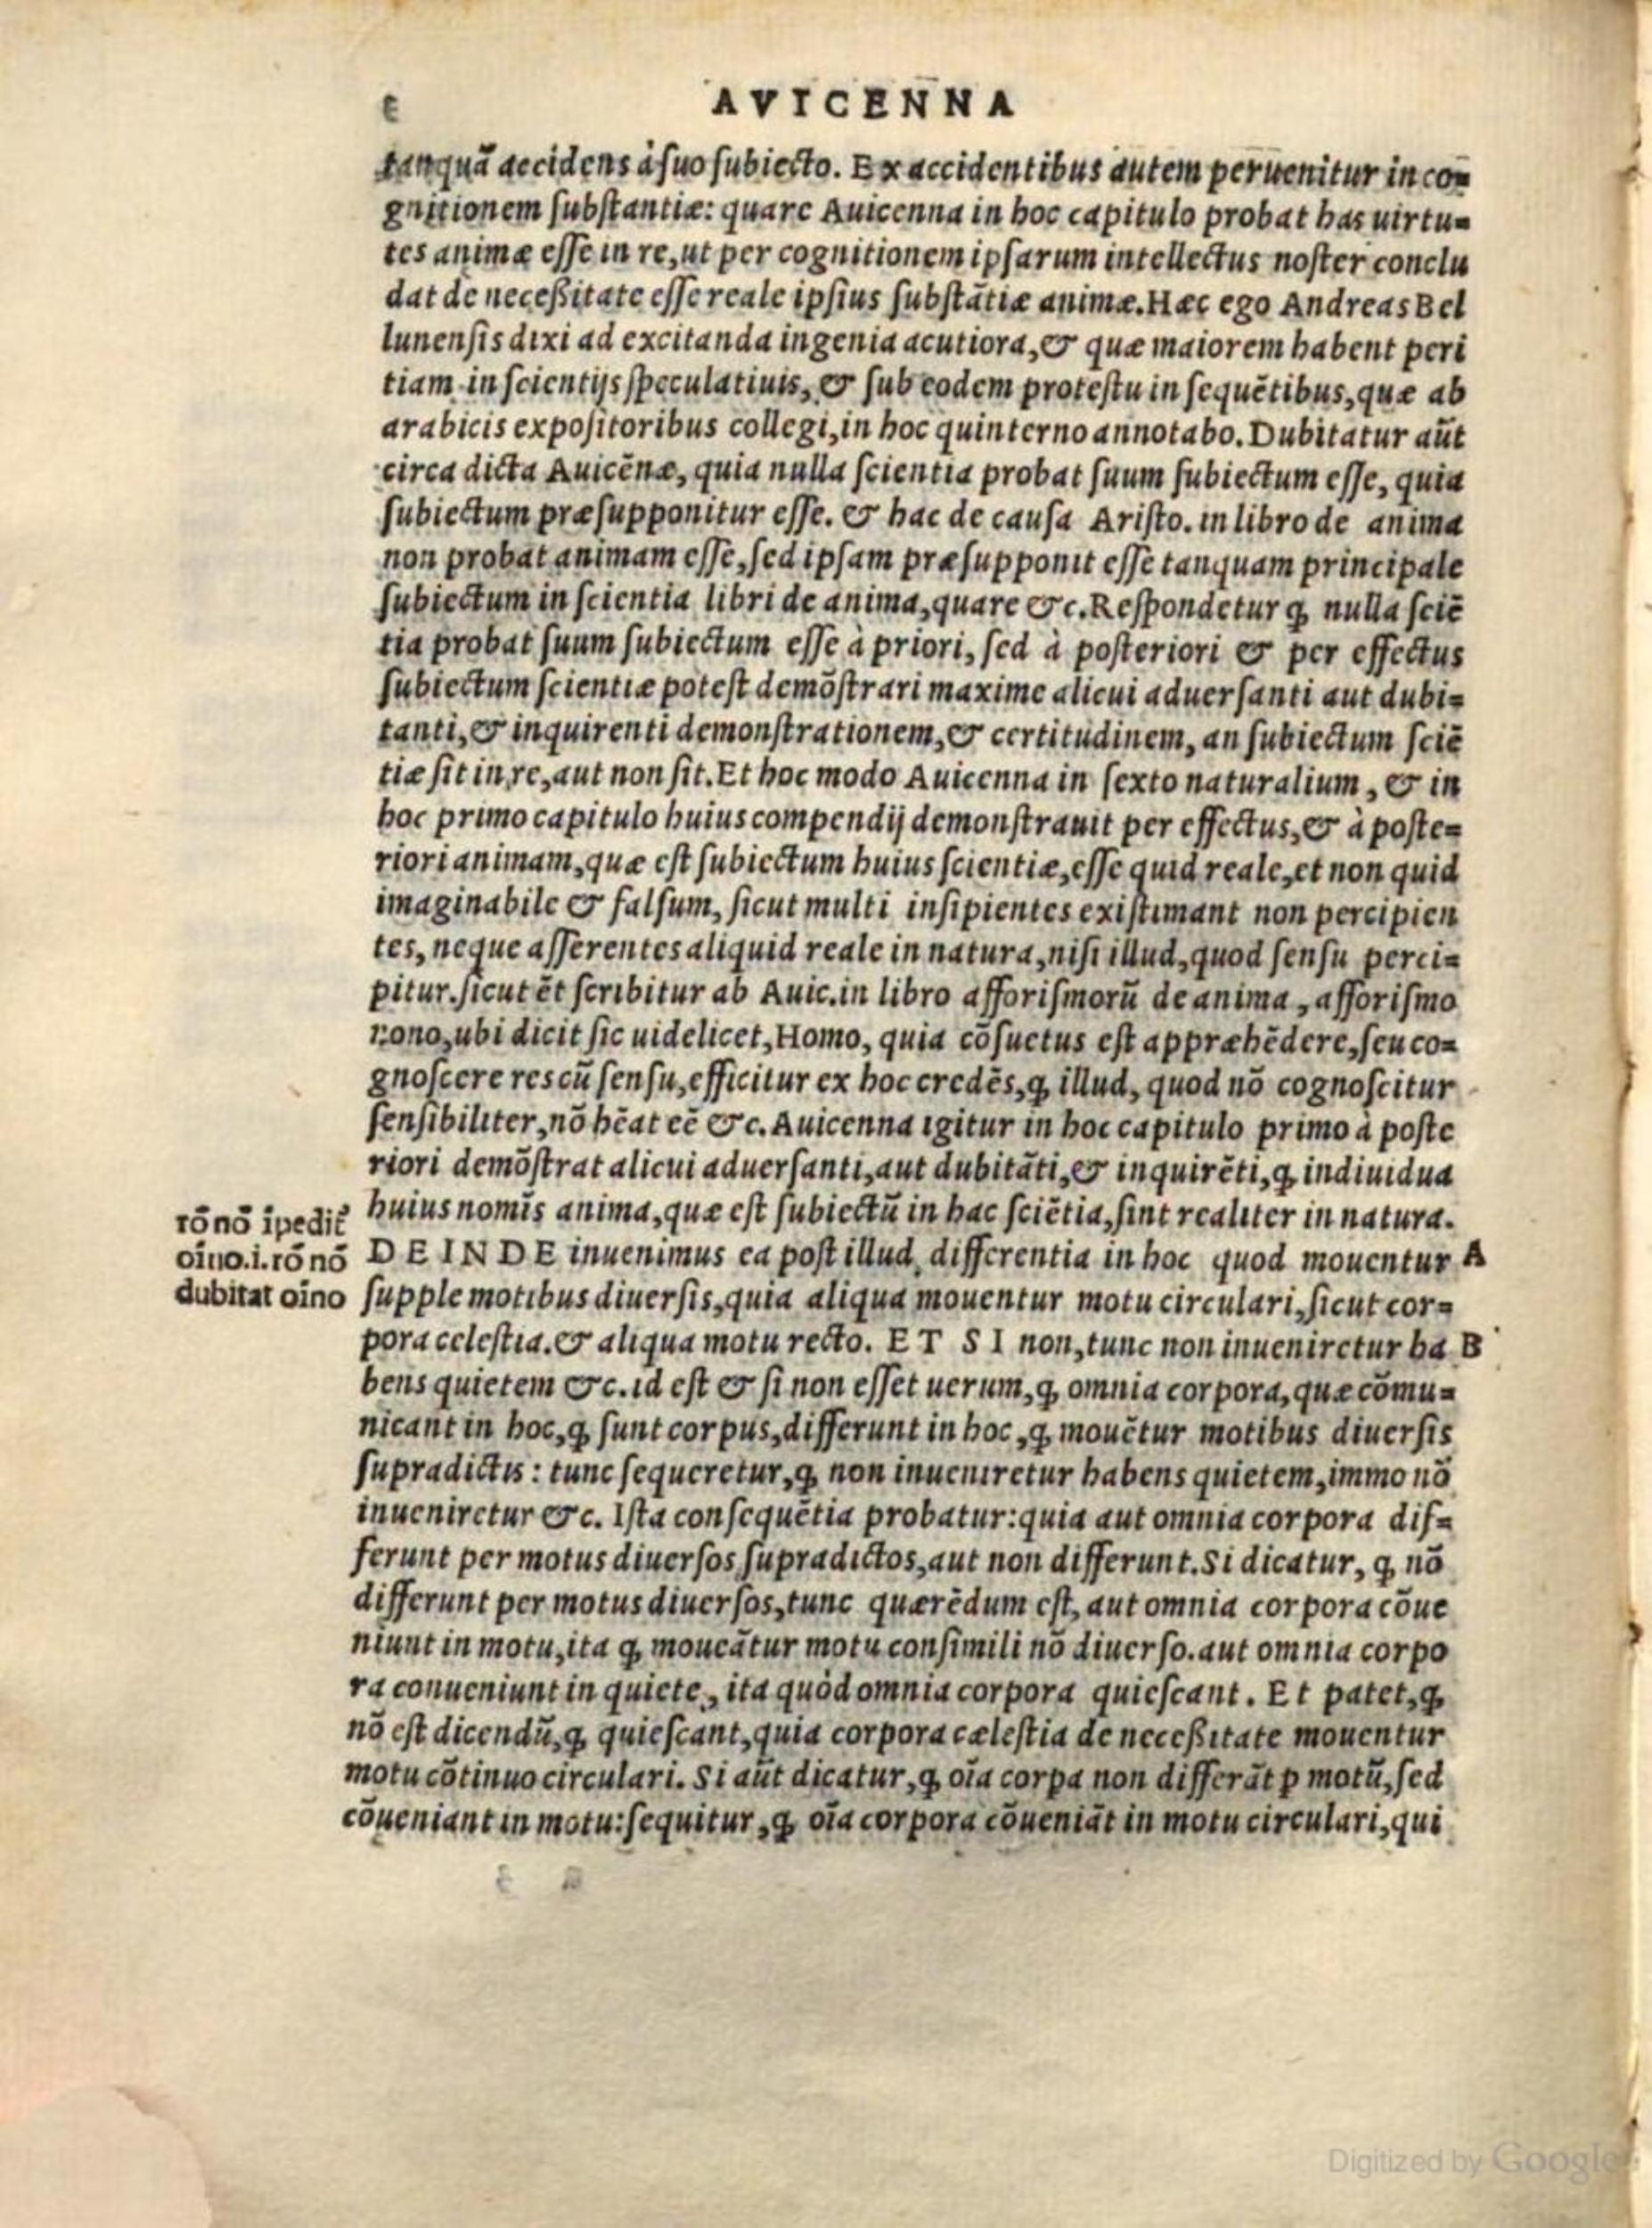 AVICENNA
tanquā accidens à ſuo ſubiecto. Ex accidentibus autem peruenitur in co=
gnitionem ſubſtantiæ: quare Auicenna in hoc capitulo probat has uirtu=
tes animæ eſſe in re, ut per cognitionem ipſarum intellectus noſter conclu
dat de neceßitate eſſe reale ipſius ſubſtātiæ animæ. Hæc ego Andreas Bel
lunenſis dixi ad excitanda ingenia acutiora, & quæ maiorem habent peri
tiam in ſcientijs ſpeculatiuis, & ſub eodem proteſtu in ſequētibus, quæ ab
arabicis expoſitoribus collegi, in hoc quinterno annotabo. Dubitatur aūt
circa dicta Auicēnæ, quia nulla ſcientia probat ſuum ſubiectum eſſe, quia
ſubiectum præſupponitur eſſe. & hac de cauſa Ariſto. in libro de anima
non probat animam eſſe, ſed ipſam præſupponit eſſe tanquam principale
ſubiectum in ſcientia libri de anima, quare &c. Reſpondetur ꝙ nulla ſciē
tia probat ſuum ſubiectum eſſe à priori, ſed à poſteriori & per effectus
ſubiectum ſcientiæ poteſt demōſtrari maxime alicui aduerſanti aut dubi=
tanti, & inquirenti demonſtrationem, & certitudinem, an ſubiectum ſciē
tiæ ſit in re, aut non ſit. Et hoc modo Auicenna in ſexto naturalium, & in
hoc primo capitulo huius compendij demonſtrauit per effectus, & à poſte=
riori animam, quæ eſt ſubiectum huius ſcientiæ, eſſe quid reale, et non quid
imaginabile & falſum, ſicut multi inſipientes exiſtimant non percipien
tes, neque aſſerentes aliquid reale in natura, niſi illud, quod ſenſu perci=
pitur. ſicut ēt ſcribitur ab Auic. in libro afforiſmorū de anima, afforiſmo
nono, ubi dicit ſic uidelicet, Homo, quia cōſuetus eſt appræhēdere, ſeu co=
gnoſcere res cū ſenſu, efficitur ex hoc credēs, ꝙ illud, quod nō cognoſcitur
ſenſibiliter, nō hēat eē &c. Auicenna igitur in hoc capitulo primo à poſte
riori demōſtrat alicui aduerſanti, aut dubitāti, & inquirēti, ꝙ indiuidua
huius nomīs anima, quæ eſt ſubiectū in hac ſciētia, ſint realiter in natura.
rō nō īpedit̄
oīno. i. rō nō
dubitat oīno
DEINDE inuenimus ea poſt illud differentia in hoc quod mouentur A
ſupple motibus diuerſis, quia aliqua mouentur motu circulari, ſicut cor=
pora celeſtia. & aliqua motu recto. ET SI non, tunc non inueniretur ha B
bens quietem &c. id eſt & ſi non eſſet uerum, ꝙ omnia corpora, quæ cōmu=
nicant in hoc, ꝙ ſunt corpus, differunt in hoc, ꝙ mouētur motibus diuerſis
ſupradictis: tunc ſequeretur, ꝙ non inueniretur habens quietem, immo nō
inueniretur &c. Iſta conſequētia probatur: quia aut omnia corpora dif=
ferunt per motus diuerſos ſupradictos, aut non differunt. Si dicatur, ꝙ nō
differunt per motus diuerſos, tunc quærēdum eſt, aut omnia corpora cōue
niunt in motu, ita ꝙ moueātur motu conſimili nō diuerſo. aut omnia corpo
ra conueniunt in quiete, ita quòd omnia corpora quieſcant. Et patet, ꝙ
nō eſt dicendū, ꝙ quieſcant, quia corpora cæleſtia de neceßitate mouentur
motu cōtinuo circulari. Si aūt dicatur, ꝙ oīa corpa non differāt p motū, ſed
cōueniant in motu: ſequitur, ꝙ oīa corpora cōueniāt in motu circulari, qui
Digitized by Google